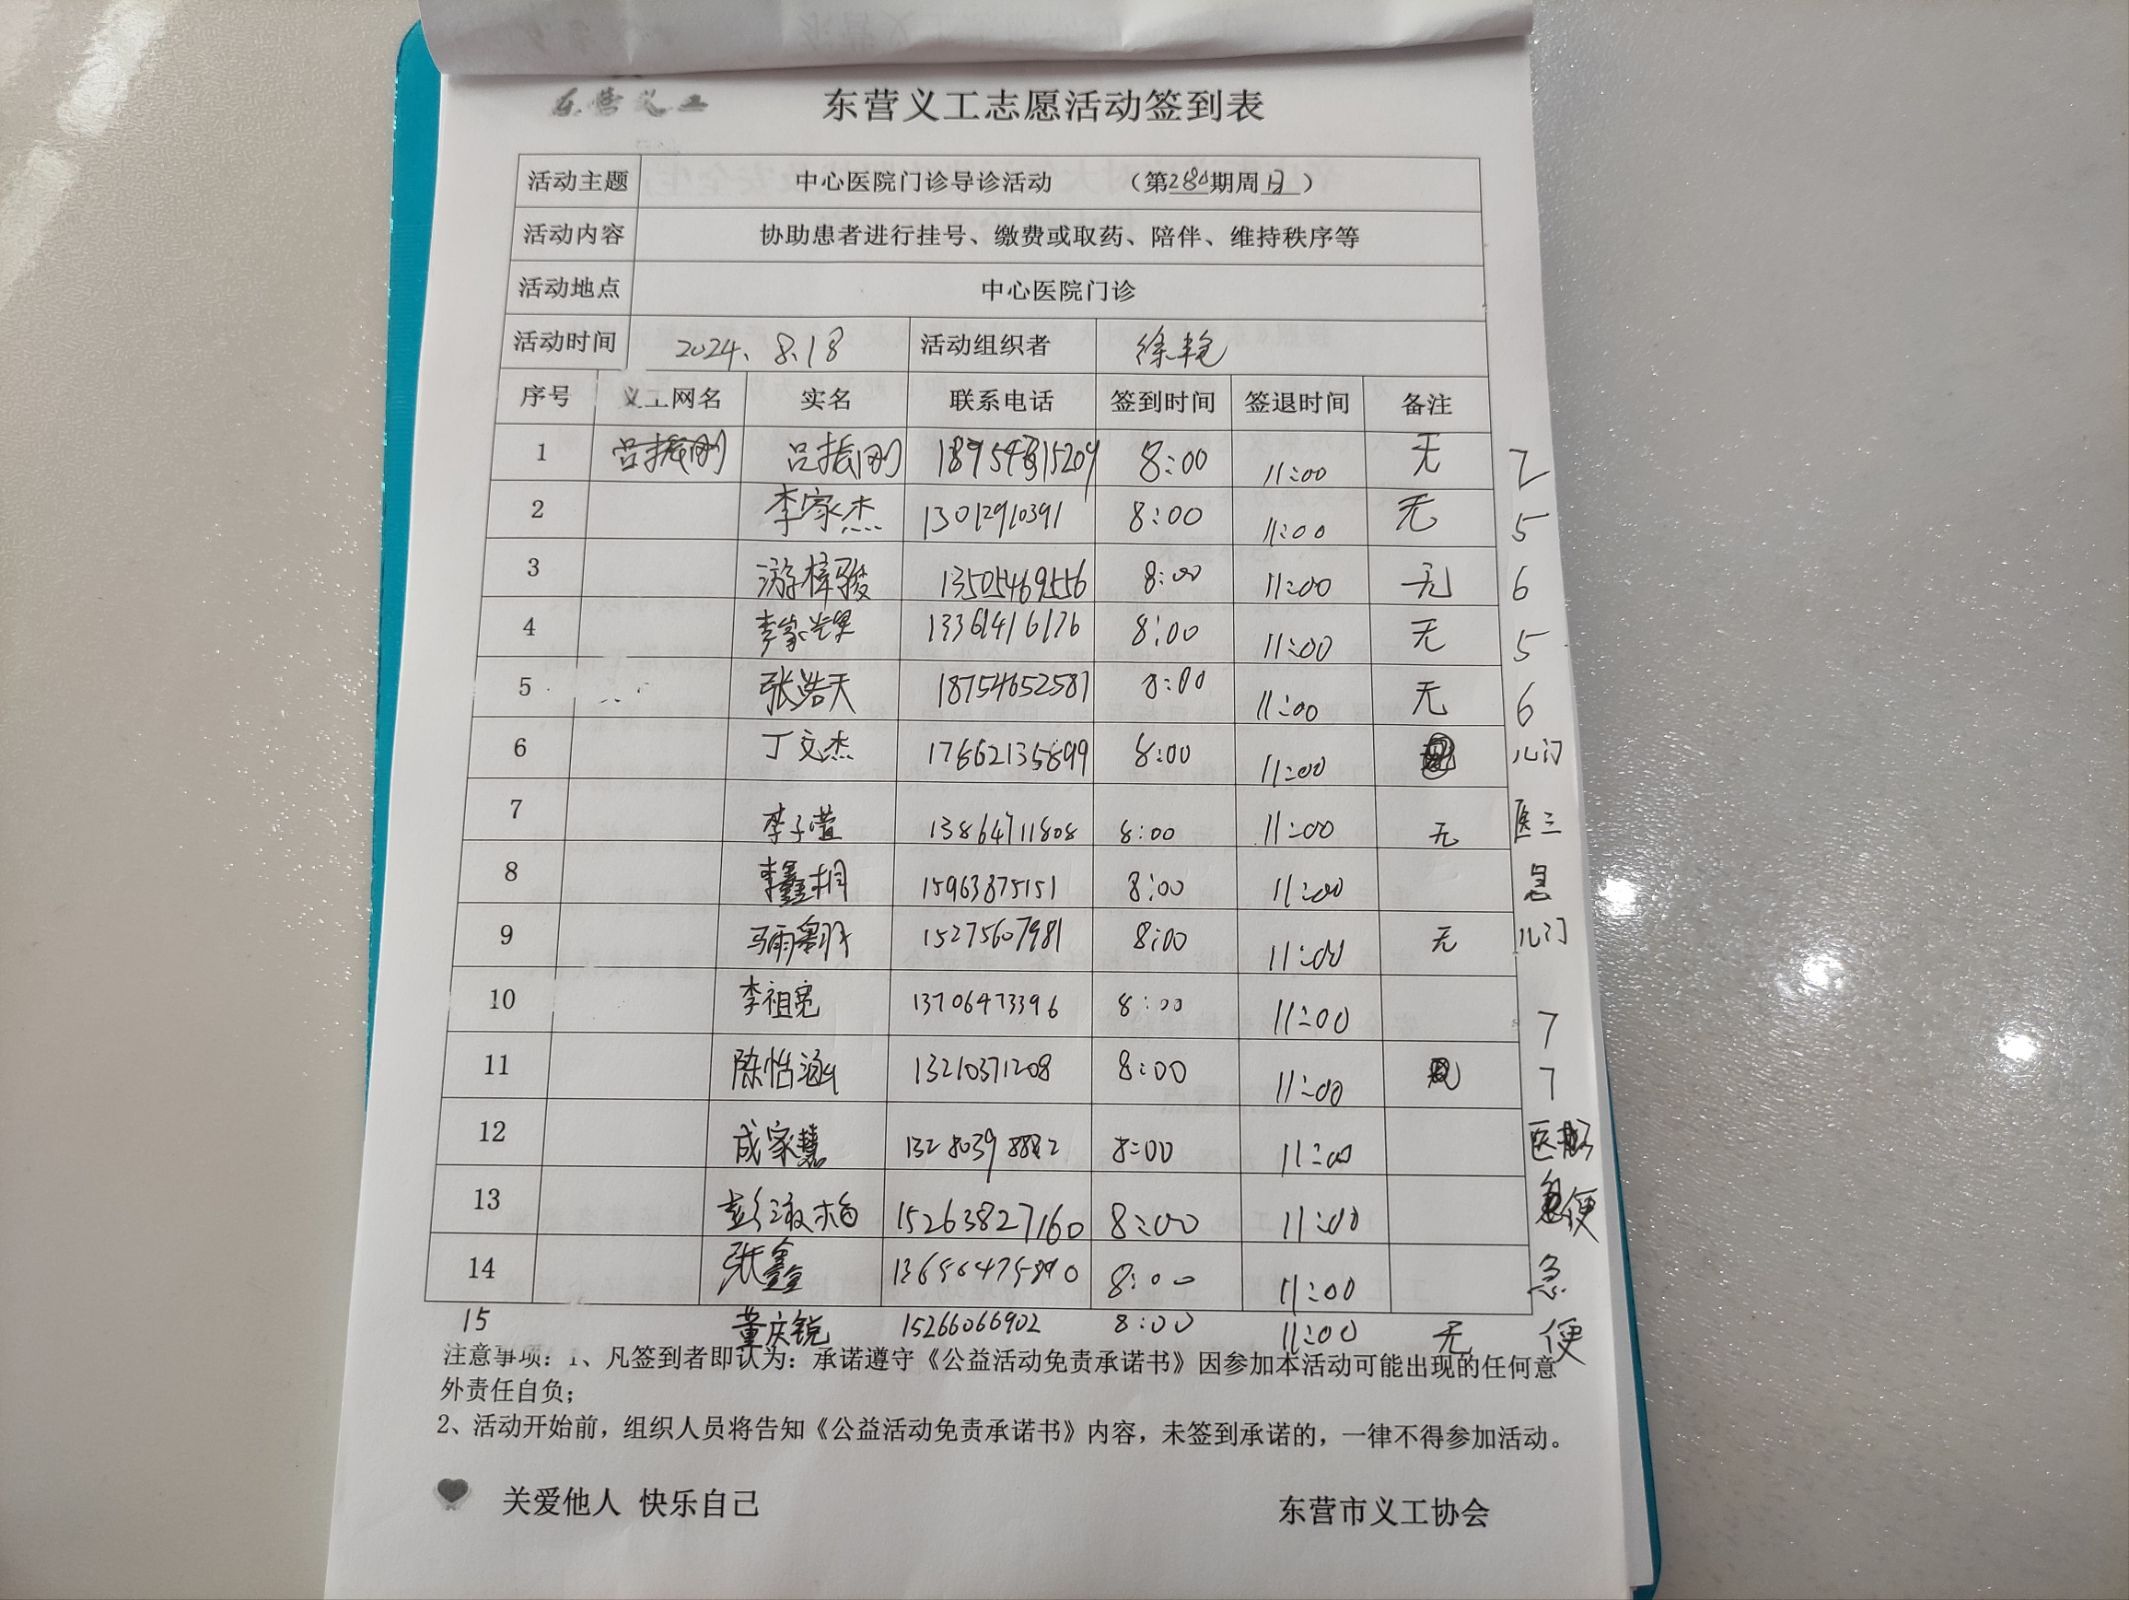 东营义工 东营义工志愿活动签到表
活动主题 中心医院门诊导诊活动 （第280期周日）
活动内容 协助患者进行挂号、缴费或取药、陪伴、维持秩序等
活动地点 中心医院门诊
活动时间 2024、8.18 活动组织者 徐艳
序号 义工网名 实名 联系电话 签到时间 签退时间 备注
1 吕振刚 吕振刚 8:00 11:00 无
2 李家杰 13012910391 8:00 11:00 无 5
3 游樟骏 13505469556 8:00 11:00 无 6
4 李家 13361416176 8:00 11:00 无 5
5 张浩天 18754652587 8:00 11:00 无 6
6 丁文杰 17862135899 8:00 11:00 儿门
7 李子萱 13864711808 8:00 11:00 无 医三
8 李鑫桐 15963875151 8:00 11:00 急
9 马雨 15275607981 8:00 11:00 无 儿门
10 李祖宽 13706473396 8:00 11:00 7
11 陈怡涵 13210371208 8:00 11:00 7
12 成家慧 8:00 11:00 医
13 彭淑楠 15263827160 8:00 11:00 便
14 张鑫 8:00 11:00 急
15 董庆锐 15266066902 8:00 11:00 无 便
注意事项：1、凡签到者即认为：承诺遵守《公益活动免责承诺书》因参加本活动可能出现的任何意
外责任自负；
2、活动开始前，组织人员将告知《公益活动免责承诺书》内容，未签到承诺的，一律不得参加活动。
关爱他人 快乐自己 东营市义工协会